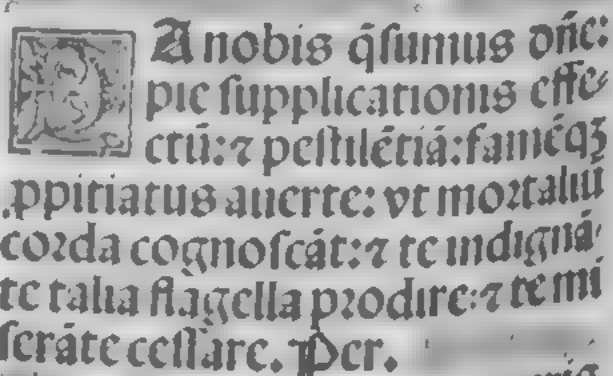 DA nobis q̃sumus dñe:
pie ſupplicationis effe-
ctū: ⁊ peſtilētiā: famēqꝫ
ꝓpitiatus auerte: vt moꝛtaliū
coꝛda cognoſcāt: ⁊ te indignā-
te talia flagella pꝛodire: ⁊ te mi
ſerāte ceſſare. Per.